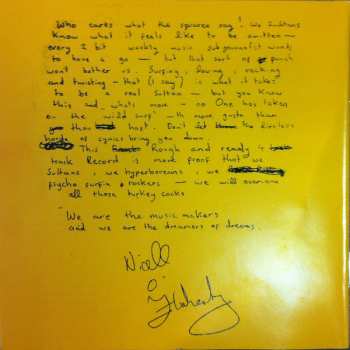 Who cares what the squares say! We Sultans
Know what it feels like to be smitten —
every 2 bit weekly music subjournalist wants
to have a go — but that sort of punch
wont bother us. Surfing, loving, rocking
and twisting - that (I say) is what it takes
to be a real Sultan — but you know
this and whats more - no One has taken
on the wild surf with more gusto than
thou host. Don't let the directors
of cynics bring you down
This Rough and ready 4
track Record is more proof that we
Sultans, we hyperboreans, we
psycho surfin rockers — we will overcome
all those turkey cocks
"We are the music makers
and we are the dreamers of dreams.
Niall
O'
Flaherty